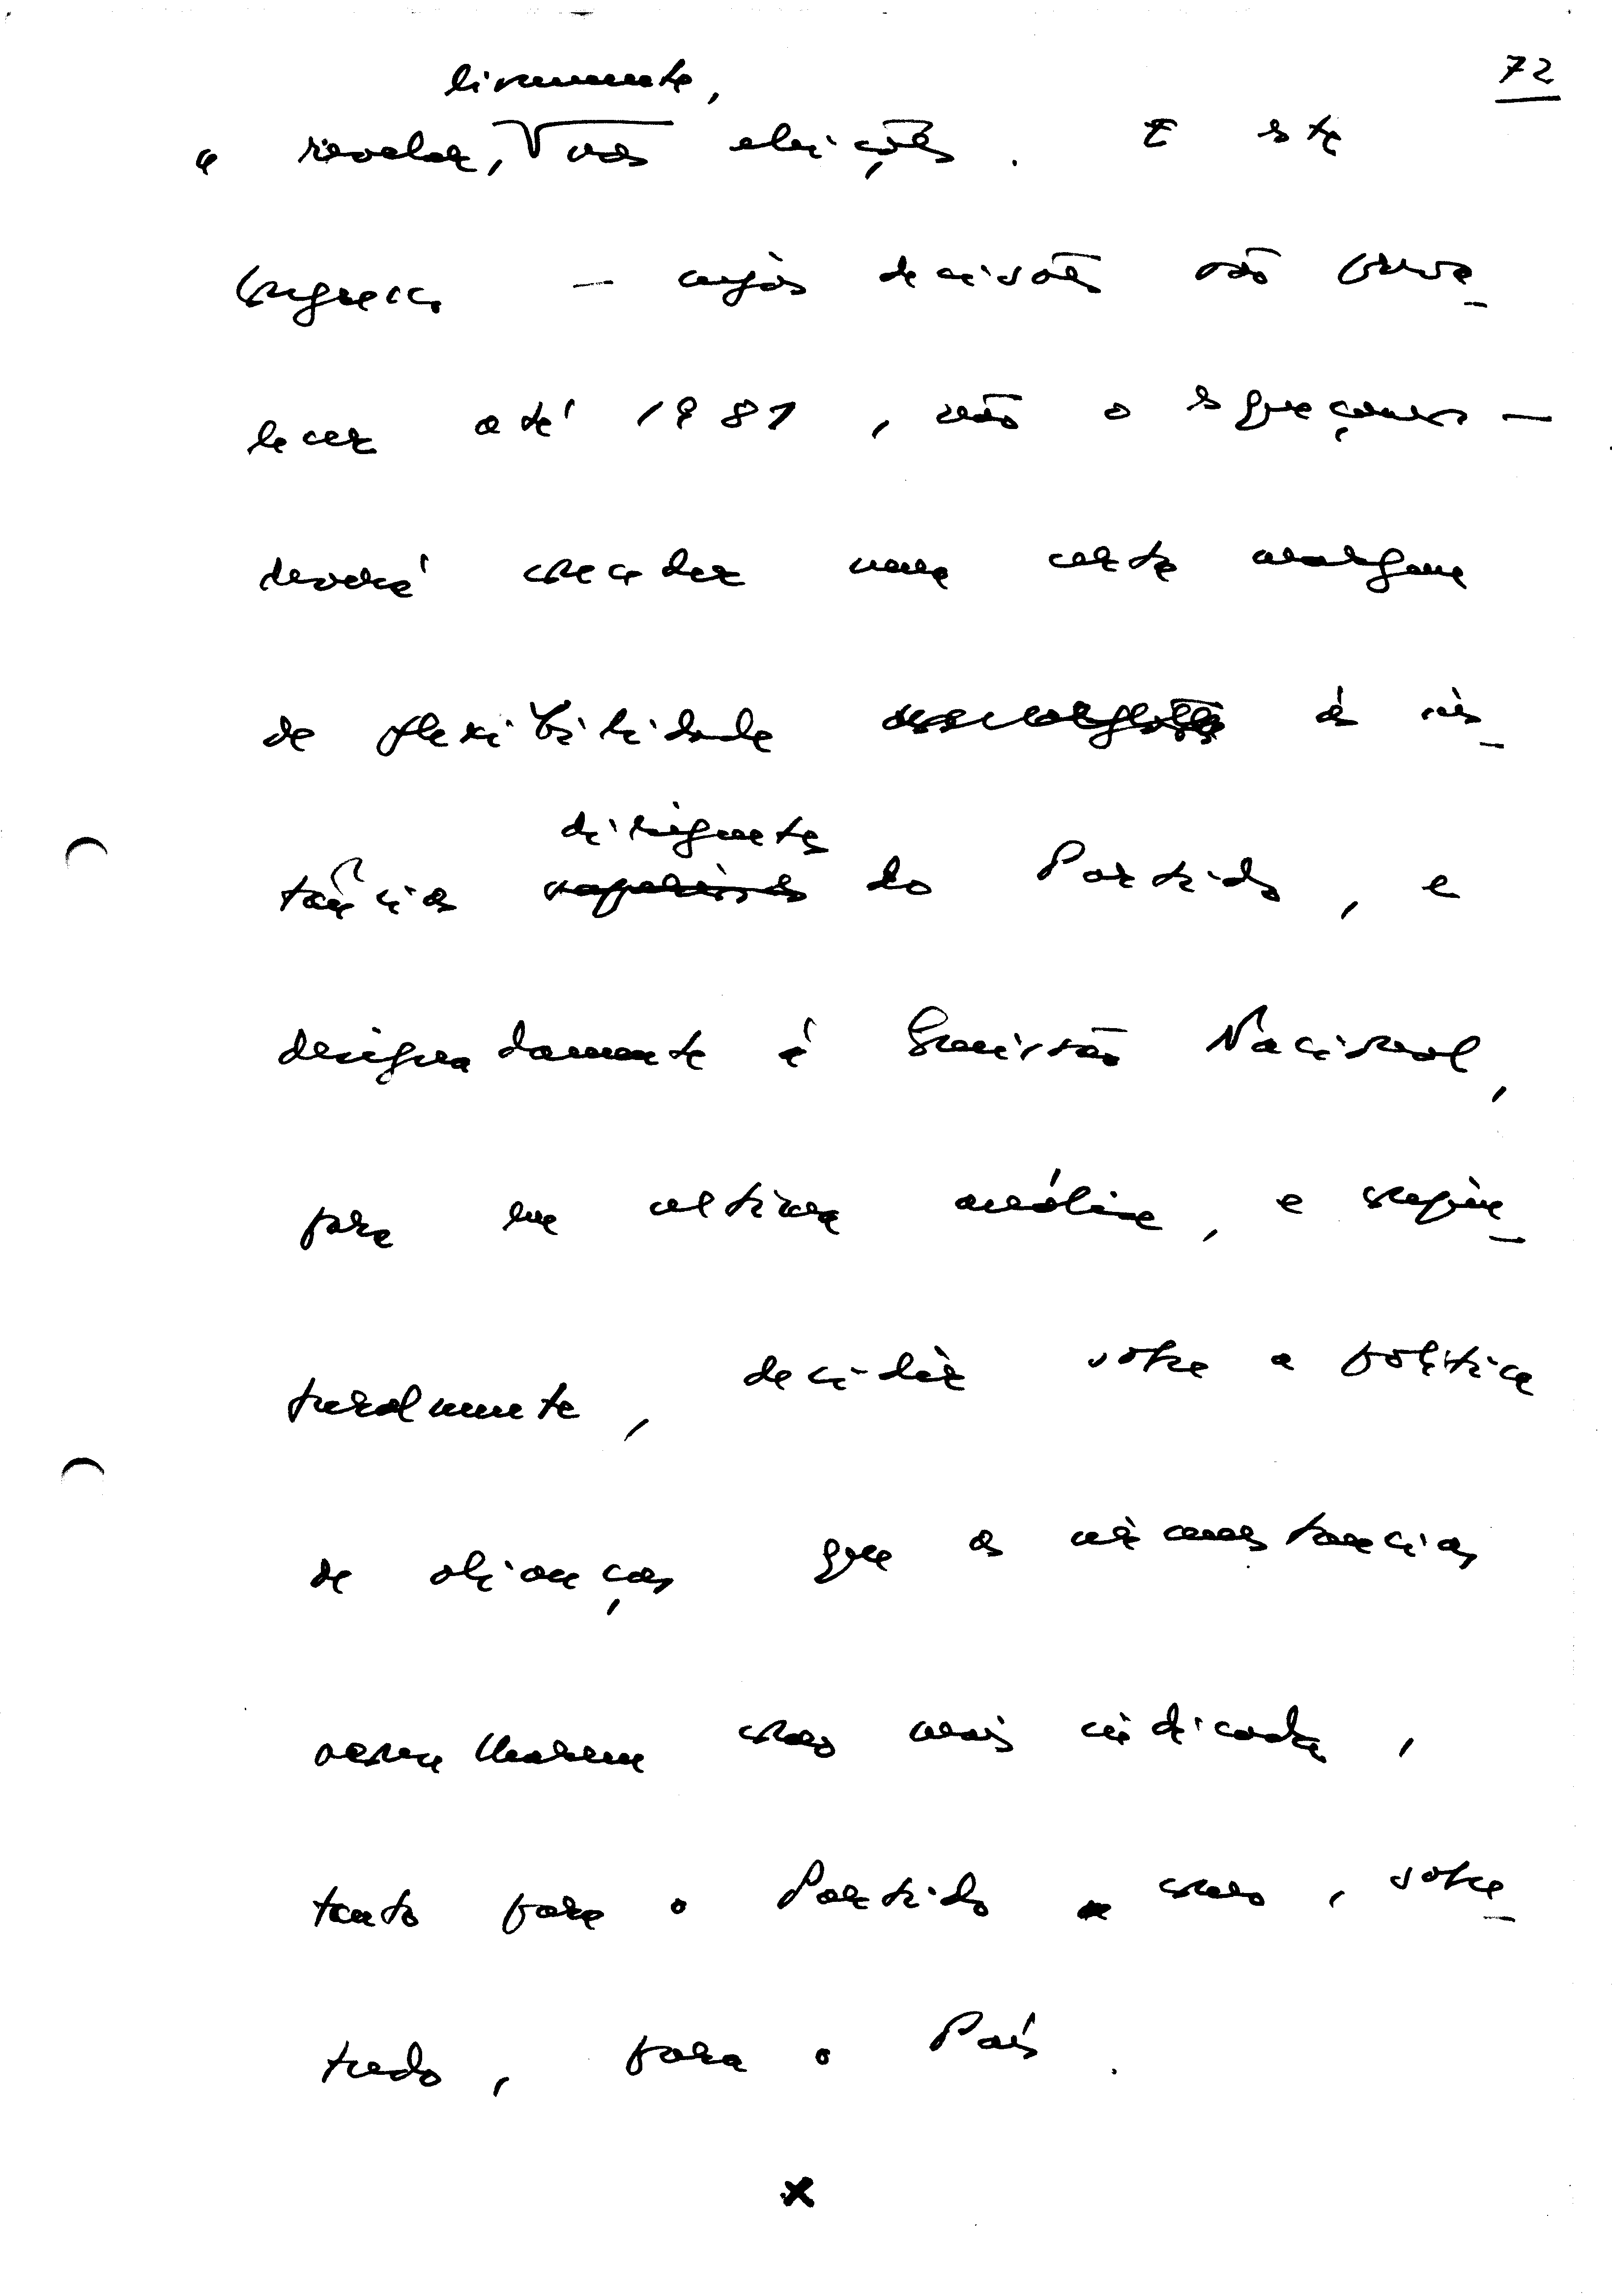 72
livremente,
a revelar, nas eleições. E este
Congresso — cujas decisões vão preva-
lecer até 1981, não o esqueçamos —
deverá conceder uma certa margem
de flexibilidade às ins-
dirigentes
tâncias do Partido, e
designadamente à Comissão Nacional,
para em última análise, e conjun-
turalmente, decidir sobre a política
de alianças que as circunstâncias
aconselharem como mais indicada,
tanto para o Partido como, sobre-
tudo, para o País.
x